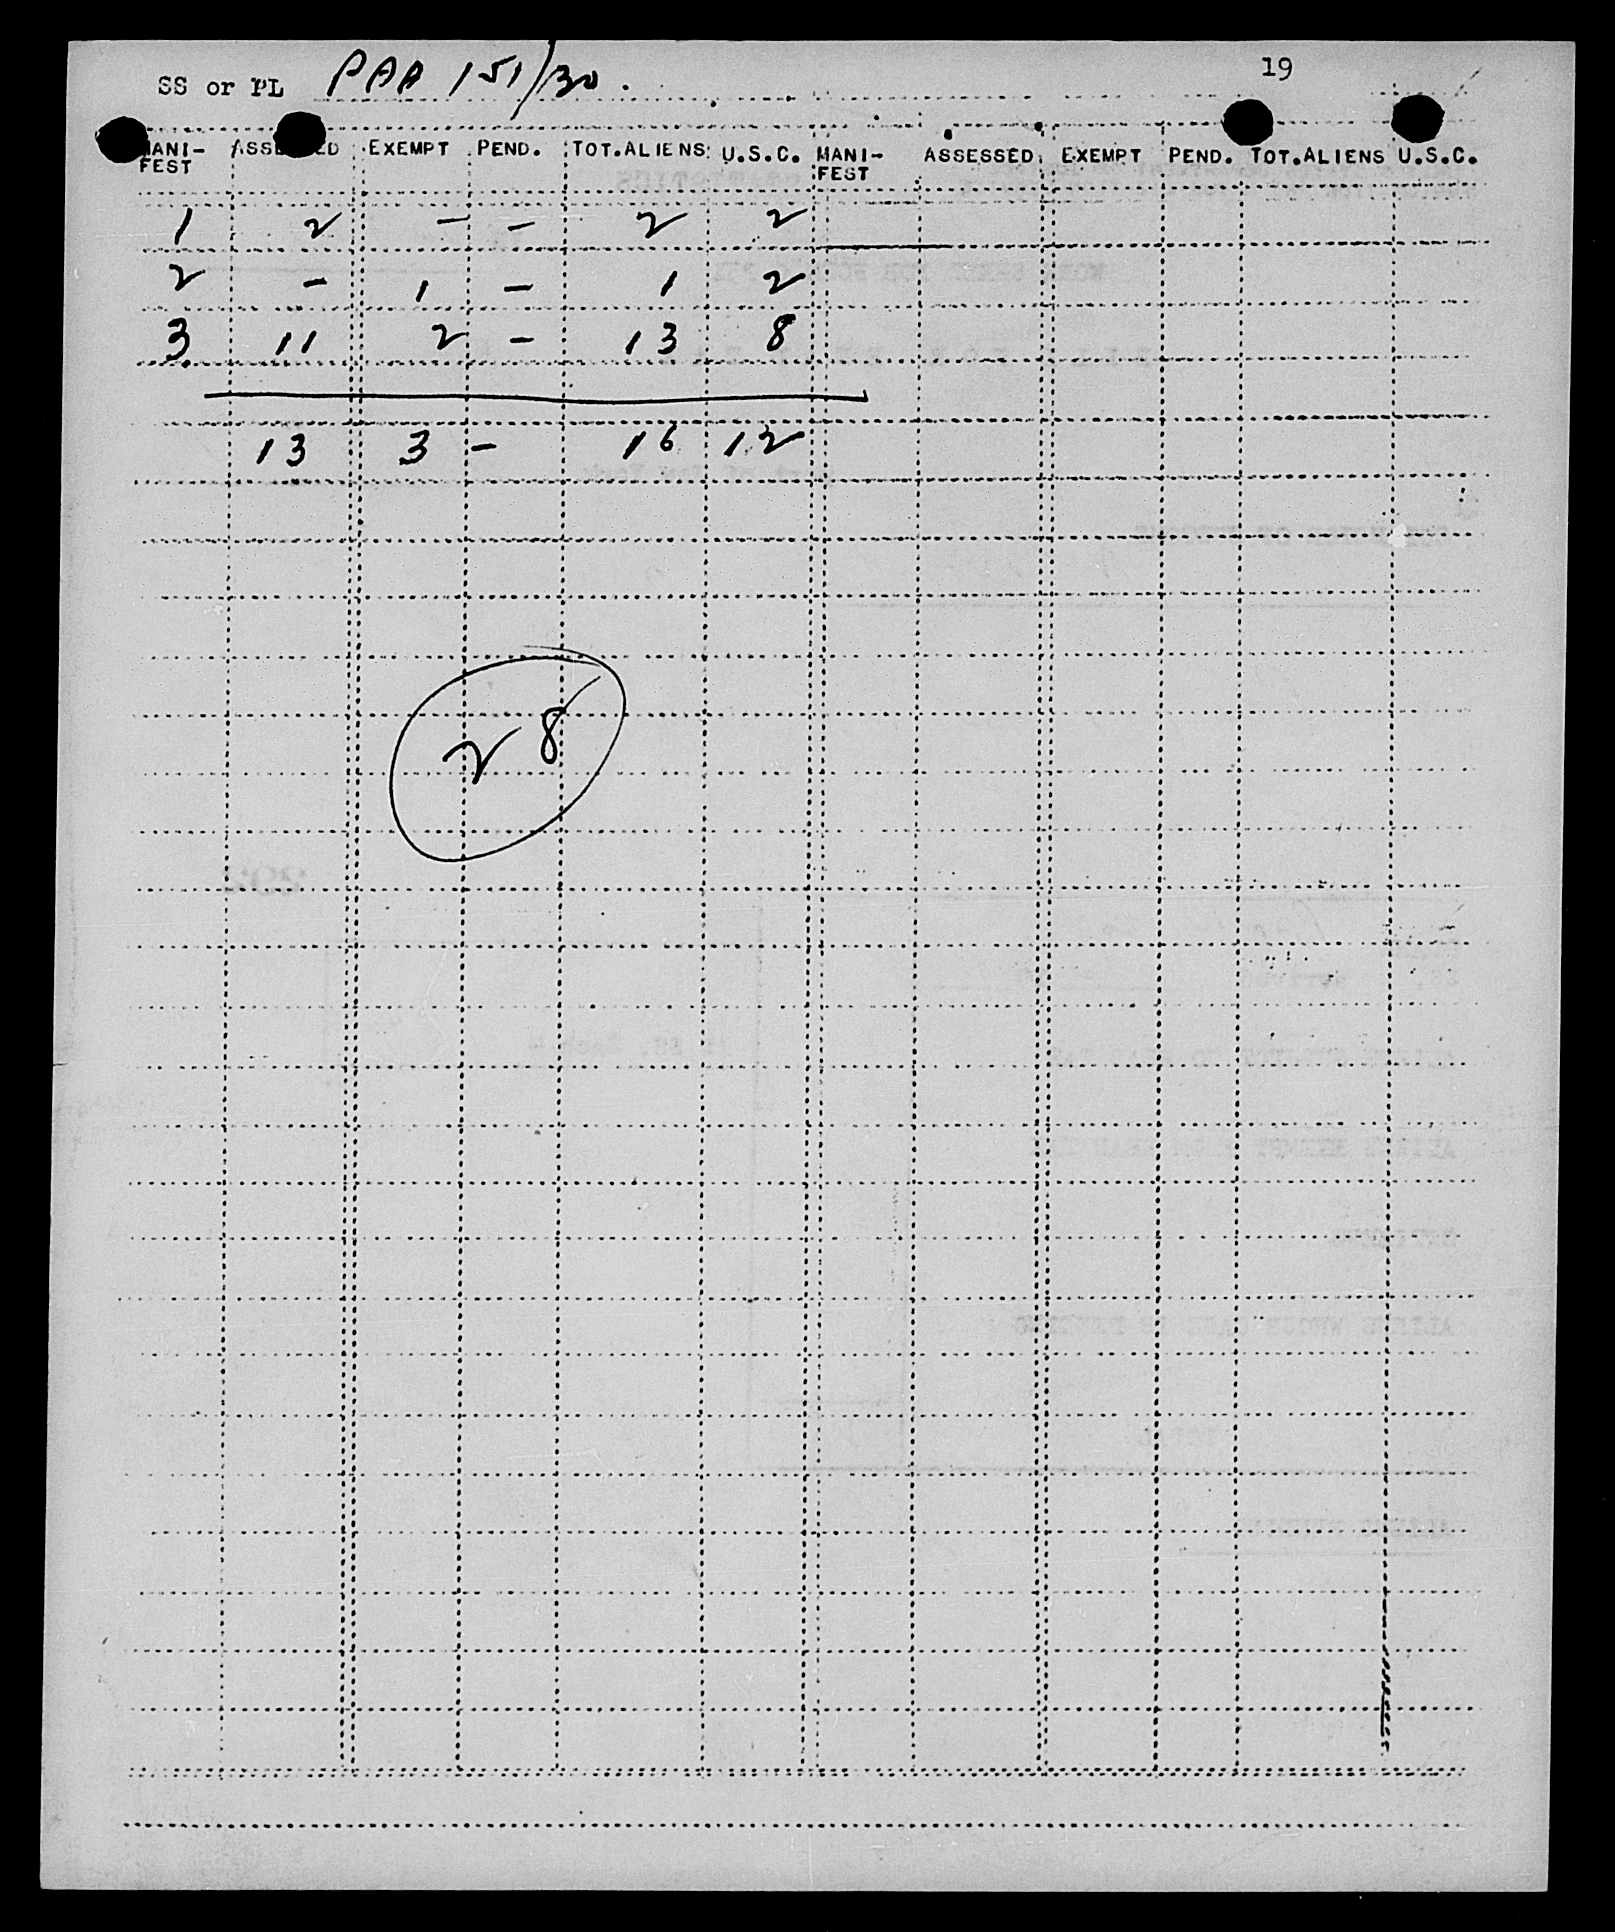 19
SS or PL PAA 151/30.
MANI- ASSESSED EXEMPT PEND. TOT.ALIENS U.S.C. MANI- ASSESSED EXEMPT PEND. TOT.ALIENS U.S.C.
FEST FEST
1 2 - - 2 2
2 - 1 - 1 2
3 11 2 - 13 8
13 3 - 16 12
28